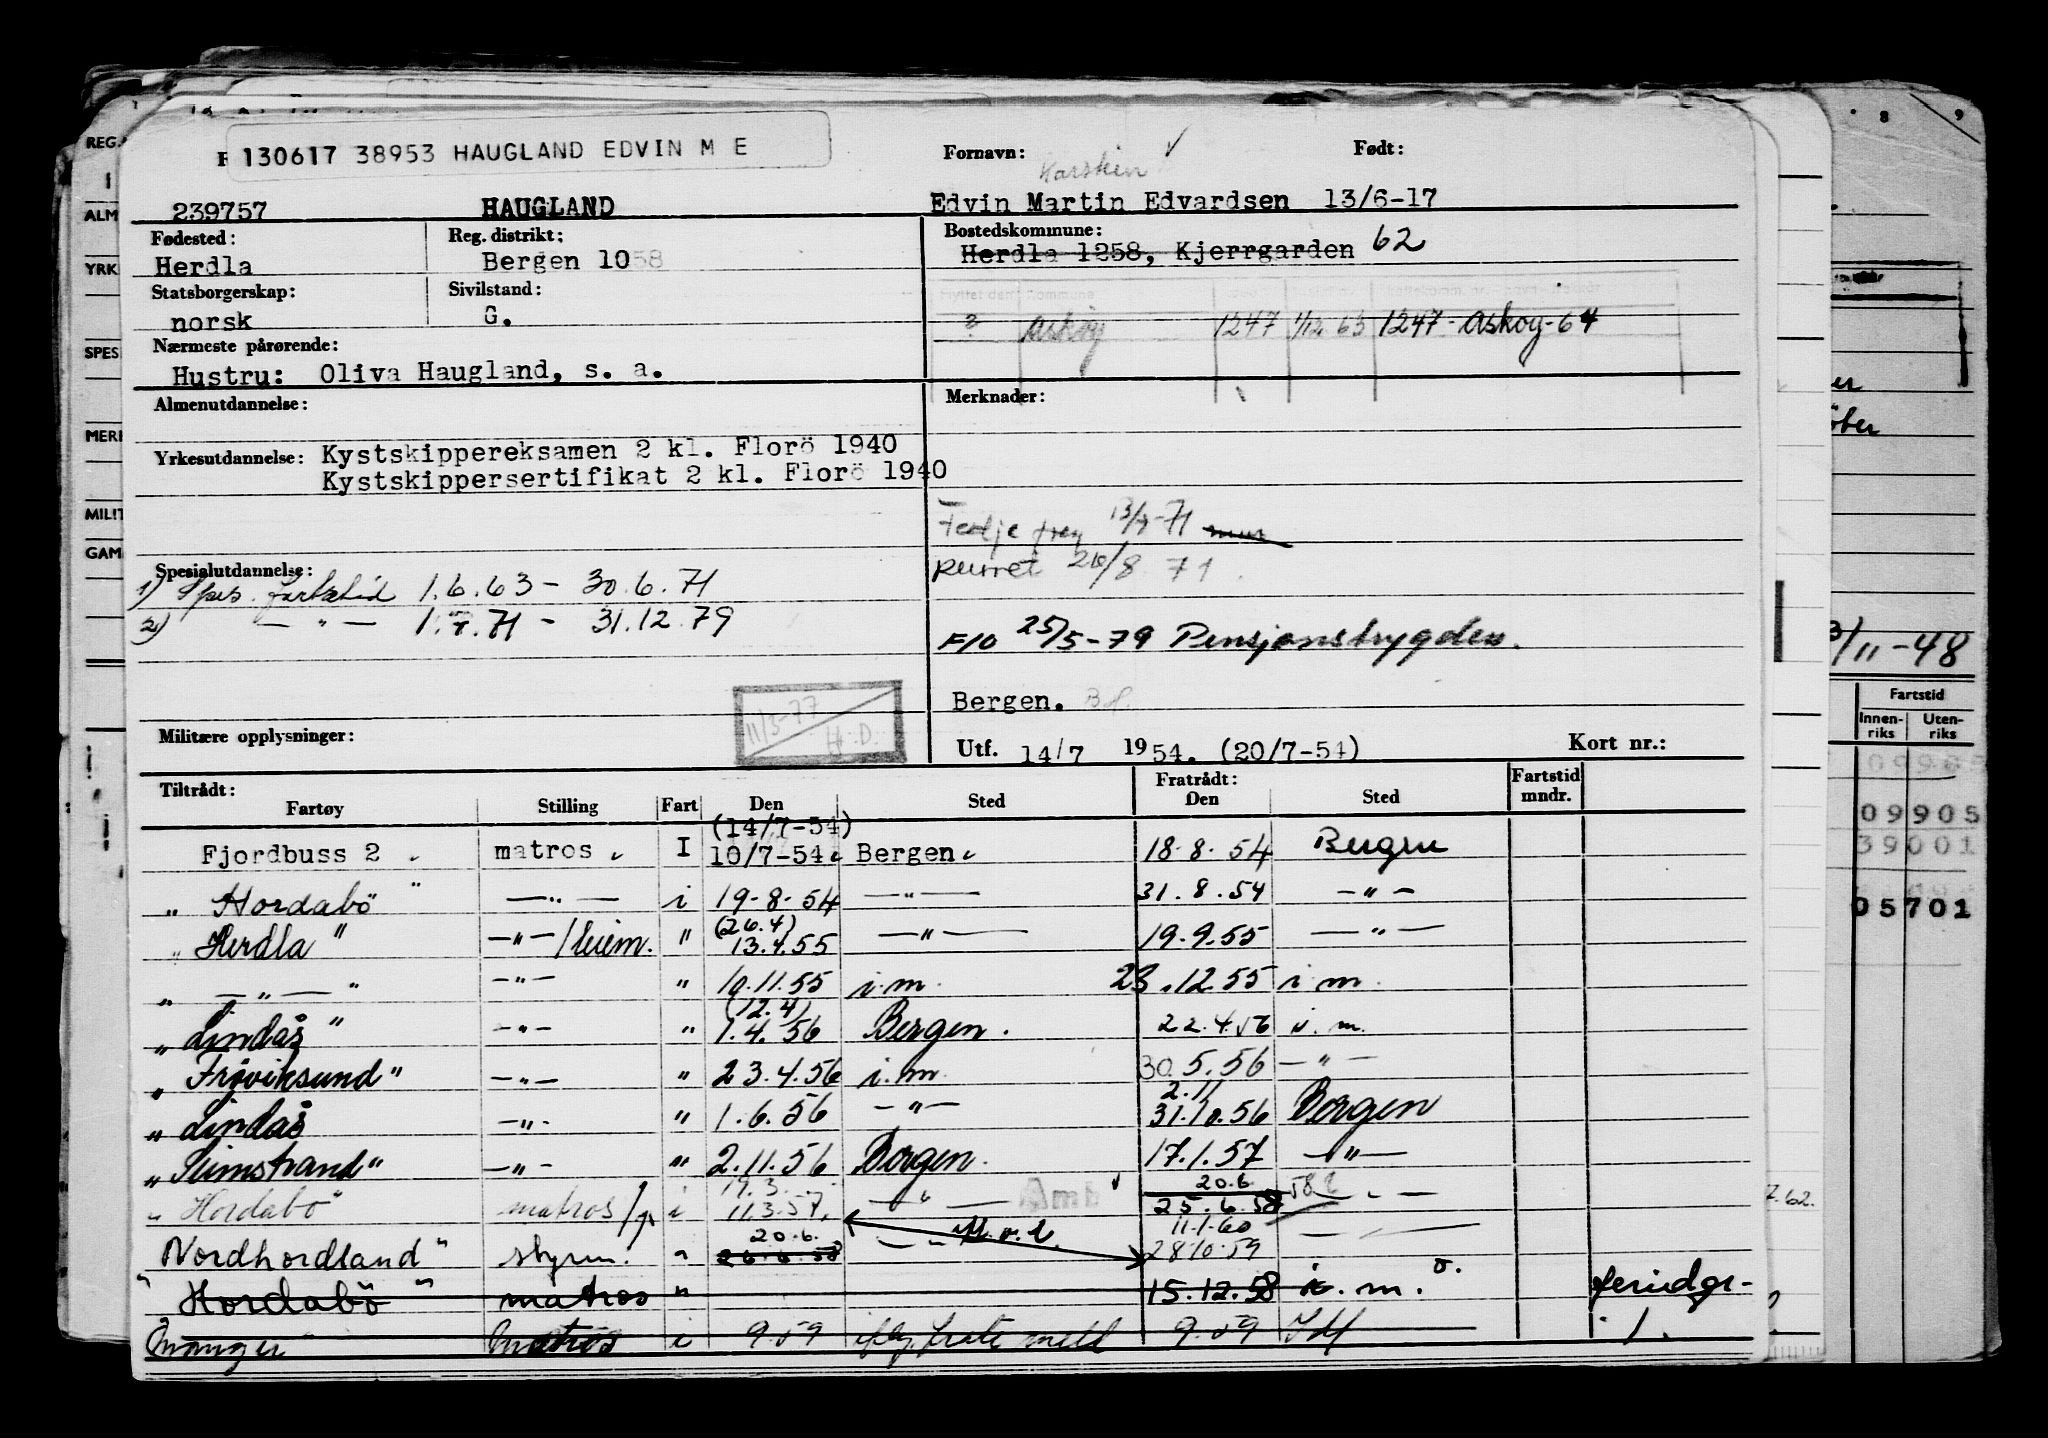 130617 38953 HAUGLAND EDVIN M E
Fornavn: Født:
Karstein
239757 HAUGLAND Edvin Martin Edvardsen 13/6-17
Fødested: Reg. distrikt: Bostedskommune:
Herdla Bergen 1058 Herdla 1258, Kjerrgarden 62
Statsborgerskap: Sivilstand:
norsk G.
? Askøy 1247 1/12 63 1247 - Askøy - 64
Nærmeste pårørende:
Hustru: Oliva Haugland, s. a.
Almenutdannelse: Merknader:
Yrkesutdannelse: Kystskippereksamen 2 kl. Florö 1940
Kystskippersertifikat 2 kl. Florö 1940
Tedje 13/7-71
purret 26/8 71.
Spesialutdannelse:
1) Spes. fartstid 1.6.63 - 30.6.71
2) — " — 1.7.71 - 31.12.79
F/O 25/5-79 Pensjonstrygden.
11/3-77
H.D.
Bergen.
Militære opplysninger:
Utf. 14/7 1954. (20/7-54) Kort nr.:
Tiltrådt: Fratrådt: Fartstid
Fartøy Stilling Fart Den Sted Den Sted mndr.
(14/7-54)
Fjordbuss 2 matros I 10/7-54 Bergen 18.8.54 Bergen
" Hordabö " — " — i 19-8-54 — " — 31.8.54 — " —
(26.4)
" Herdla " — " — " 13.4.55 — " — 19.9.55 — " —
" — " — " — " — " 10.11.55 i.m. 23.12.55 i.m.
(12.4)
" Lindås " — " — " 1.4.56 Bergen. 22.4.56 i.m.
" Frøviksund " — " — " 23.4.56 i.m. 30.5.56 — " —
2.11
" Lindås — " — " 1.6.56 — " — 31.10.56 Bergen
" Seimstrand " — " — " 2.11.56 Bergen. 17.1.57 — " —
20.6.
" Hordabö " matros i 11.3.57. — " — Amb 25.6.58
20.6. 11.1.60
Nordhordland " styrm. " 26.6.58 — " — 28.10.59
" Hordabö " matros " 15.12.58 i.m.
Manger matros i 9.59 9.59
REG.
ALM
YRK
SPES
MERI
MILIT
GAM
8 9
3/11-48
Fartstid
Innen- Uten-
riks riks
09905
09905
39001
05701
7.62.